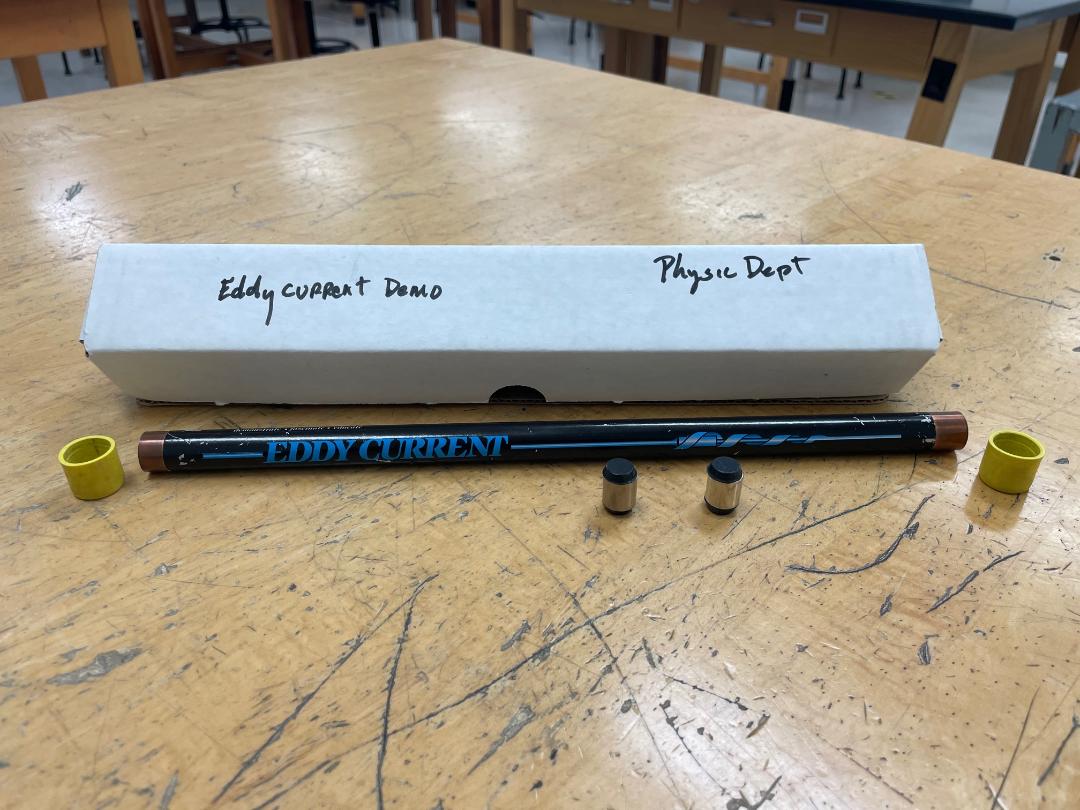 Eddy CURRENT DEMO
Physic Dept
EDDY CURRENT